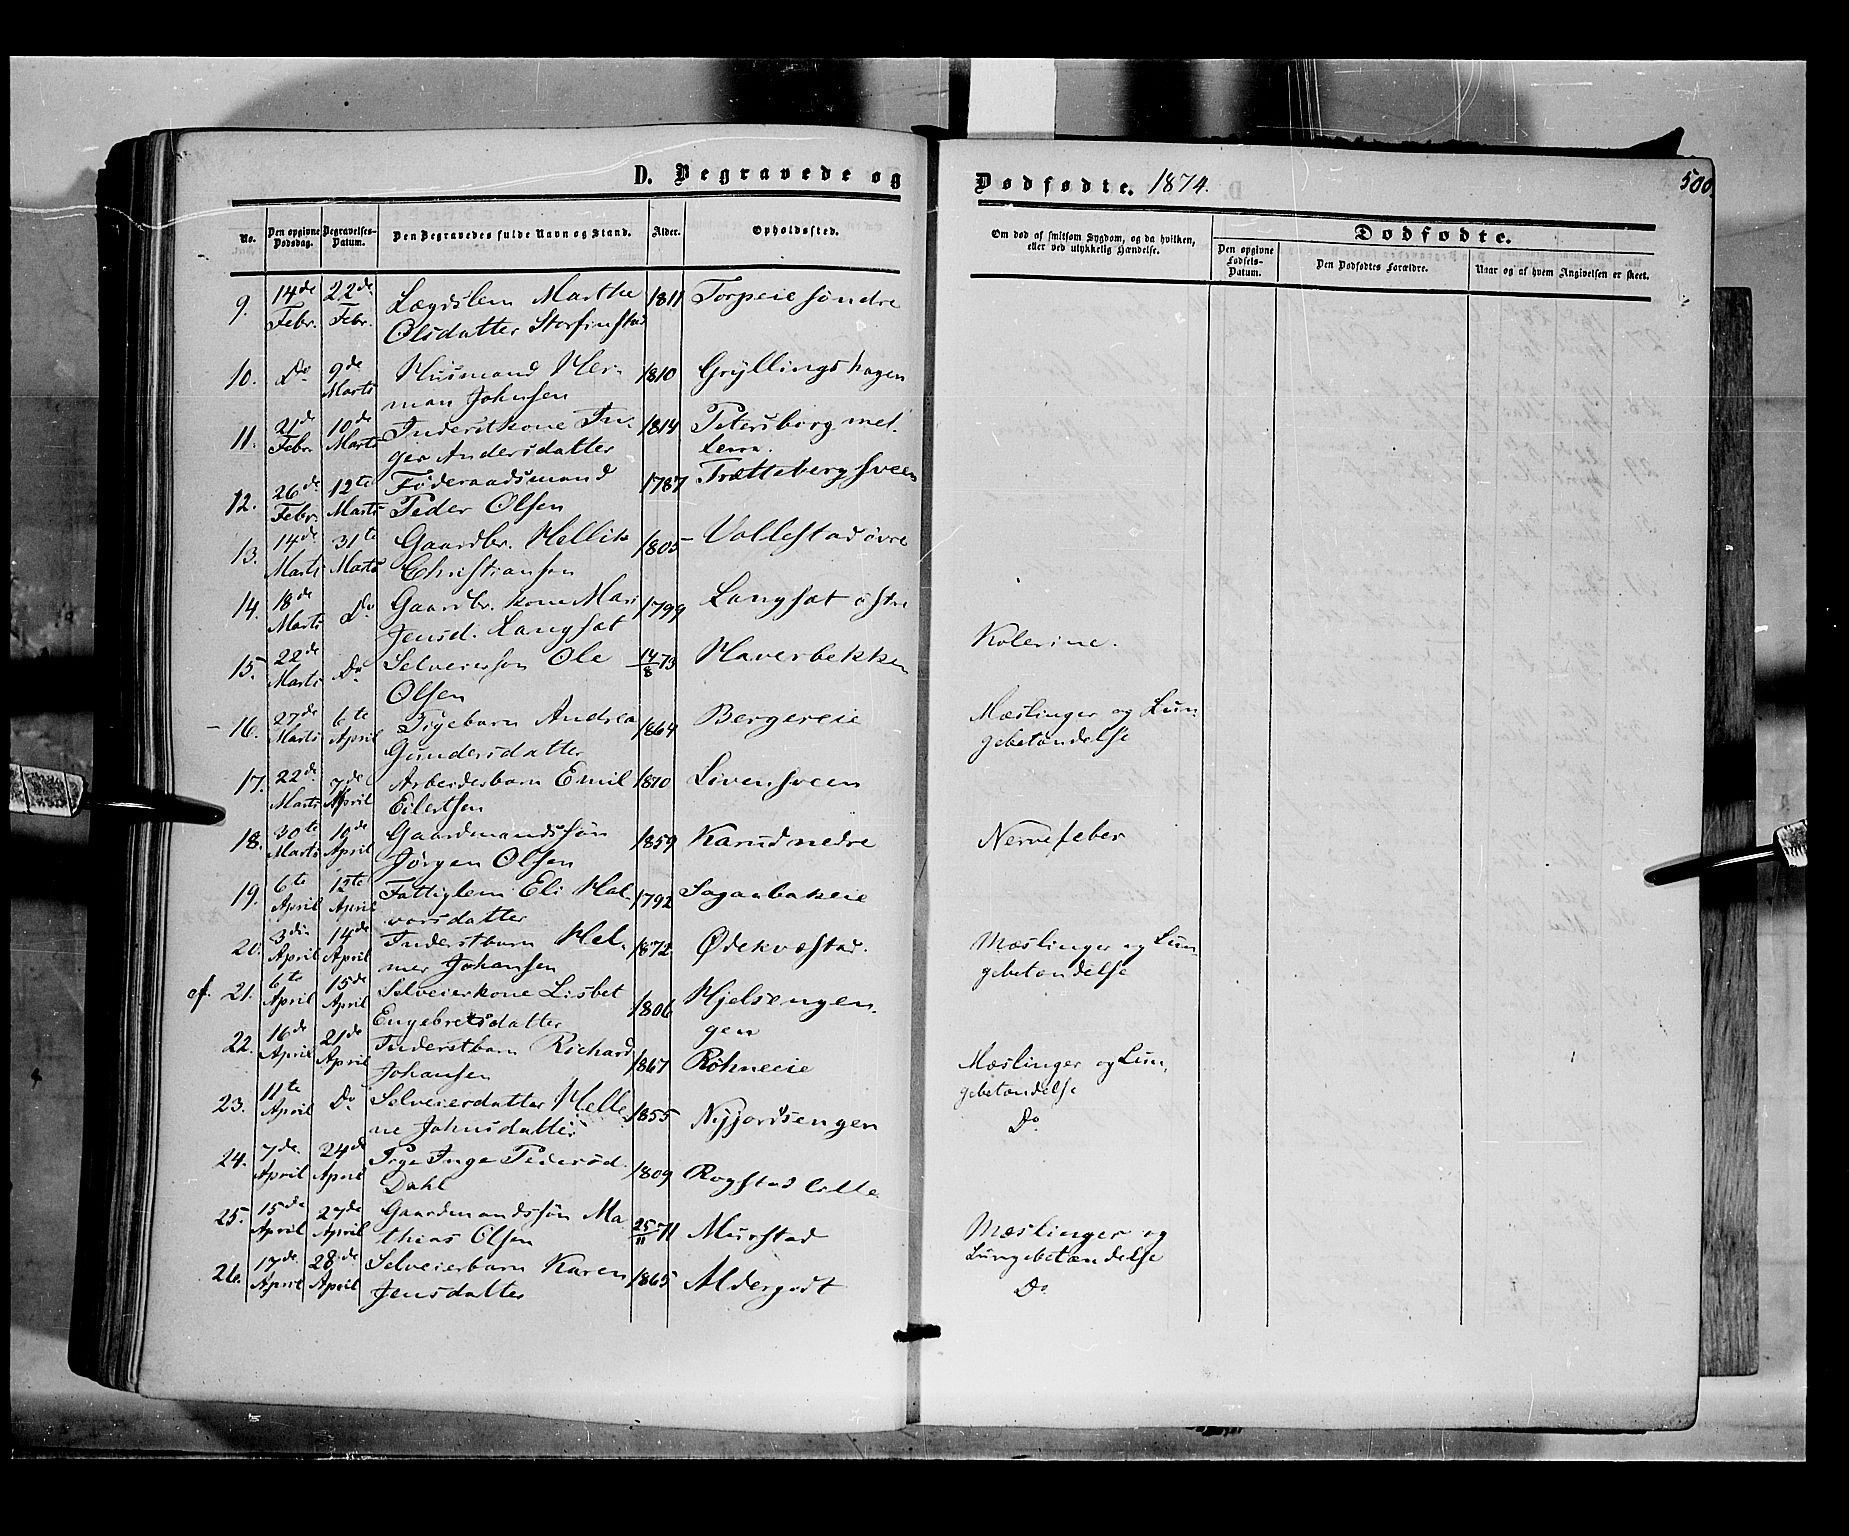 D. Begravede og
Dødfødte. 1874.
500.
No.
Den opgivne Dødsdag.
Begravelses-Datum.
Den Begravedes fulde Navn og Stand.
Alder.
Opholdssted.
Om død af smitsom Sygdom, og da hvilken,
eller ved ulykkelig Hændelse.
Dødfødte.
Den opgivne
Fødsels-
Datum.
Den Dødfødtes Forældre.
Naar og af hvem Angivelsen er skeet.
9. 14de Febr. 22de Febr. Lægdslem Marthe 1811 Torpeie søndre
Olsdatter
10. Do 9de Marts Husmand Her- 1810 Gryllingshagen
man Johnsen
11. 21de Febr. 10de Marts Inderstkone In- 1814 Petersborg mel-
ger Andersdatter lem.
12. 26de Febr. 12te Marts Føderaadsmand 1787 Trættebergsveen
Peder Olsen
13. 14de Marts 31te Marts Gaardbr. Hellik 1805 Vollestad øvre
Christiansen
14. 18de Marts Do Gaardbr. kone Mari 1799 Langsæt østre
Jensd. Langsæt
15. 22de Marts Do Selveiersøn Ole 14/8 73 Haverbekken Kolerine.
Olsen
16. 27de Marts 6te April Pigebarn Andrea 1864 Bergereie Mæslinger og Lun-
Gundersdatter gebetændelse
17. 22de Marts 7de April Arbeiderbarn Emil 1870 Livensveen
Eilertsen
18. 30te Marts 10de April Gaardmandssøn 1859 Karud nedre Nervefeber
Jørgen Olsen
19. 6te April 12te April Fattiglem Eli Hal- 1792 Sagabakeie
vorsdatter
20. 3die April 14de April Inderstbarn Hel- 1872 Ødekvæstad. Mæslinger og Lun-
mer Johansen gebetændelse
cf. 21. 6te April 15de April Selveierkone Lisbet 1806 Hjelsengen.
Engebretsdatter gen
22. 16de April 21de April Inderstbarn Richard 1867 Røhneeie Mæslinger og Lun-
Johansen gebetændelse
23. 11te April Do Selveierdatter Helle- 1855 Nyjordsengen Do
ne Johnsdatter
24. 7de April 24de April Pige Inge Pedersd. 1809 Rogstad lille
Dahl
25. 15de April 27de April Gaardmandssøn Ma- 25/11 71 Murstad Mæslinger og
thias Olsen Lungebetændelse
26. 17de April 28de April Selveierbarn Karen 1865 Aldergodt Do
Jensdatter